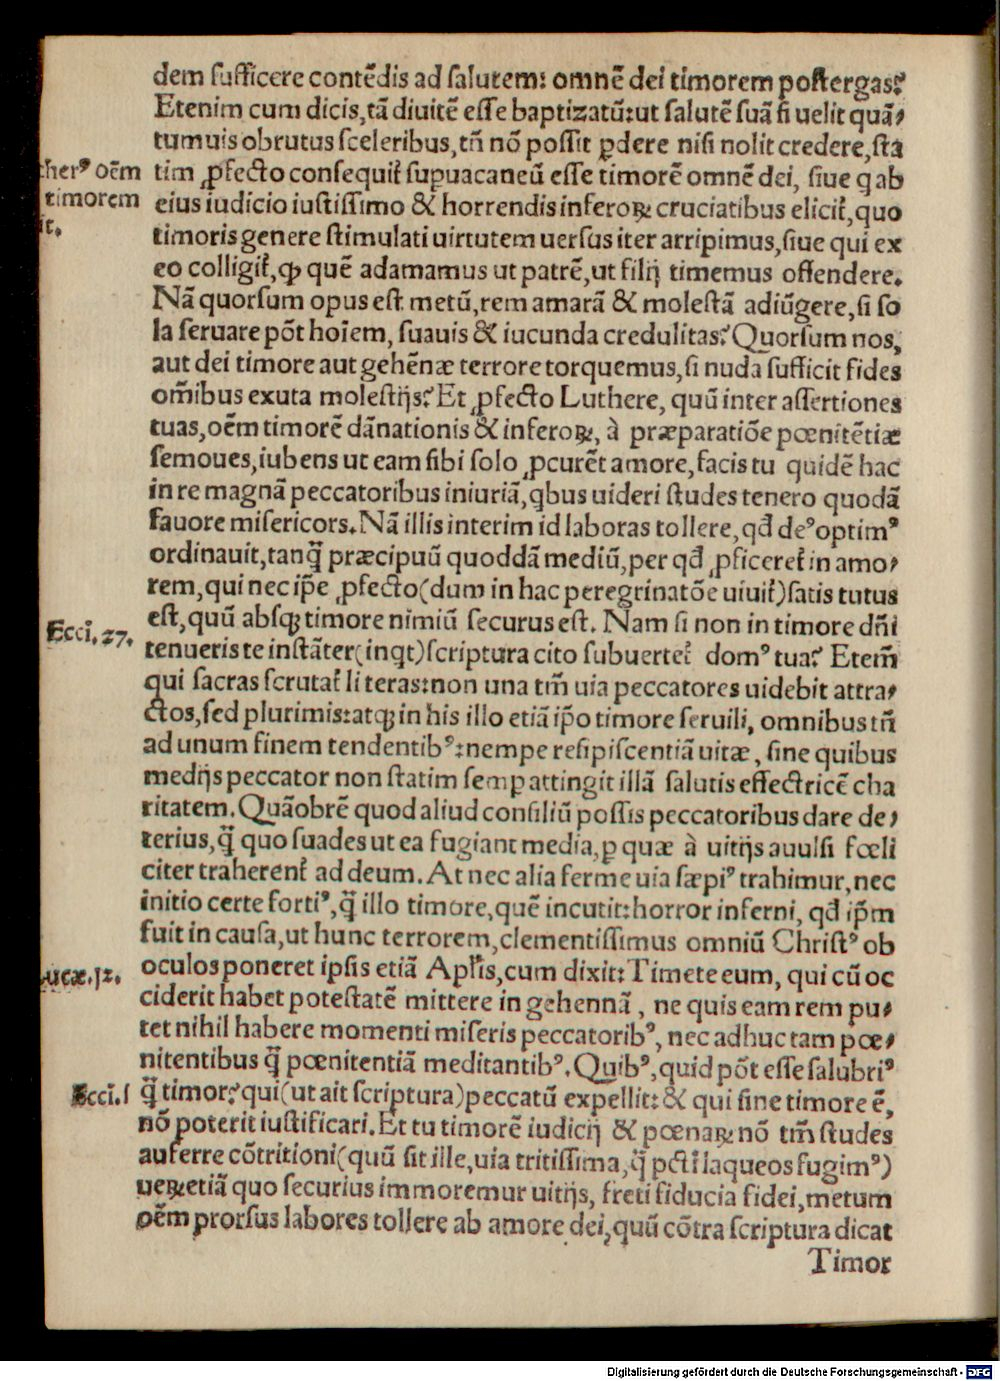 dem ſufficere contẽdis ad ſalutem: omnẽ dei timorem poſtergas?
Etenim cum dicis, tã diuitẽ eſſe baptizatũ: ut ſalutẽ ſuã ſi uelit quã,
tumuis obrutus ſceleribus, tñ nõ poſſit ꝑdere niſi nolit credere, ſta
tim ꝓfecto conſequit̃ ſuꝑuacaneũ eſſe timorẽ omnẽ dei, ſiue q ab
eius iudicio iuſtiſſimo & horrendis inferoꝝ cruciatibus elicit̃, quo
timoris genere ſtimulati uirtutem uerſus iter arripimus, ſiue qui ex
eo colligit̃, ꝙ quẽ adamamus ut patrẽ, ut filij timemus offendere.
Nã quorſum opus eſt metũ, rem amarã & moleſtã adiũgere, ſi ſo
la ſeruare põt hoĩem, ſuauis & iucunda credulitas? Quorſum nos,
aut dei timore aut gehẽnæ terrore torquemus, ſi nuda ſufficit fides
om̃ibus exuta moleſtijs? Et ꝓfecto Luthere, quũ inter aſſertiones
tuas, oẽm timorẽ dãnationis & inferoꝝ, à præparatiõe pœnitẽtiæ
ſemoues, iubens ut eam ſibi ſolo ꝓcurẽt amore, facis tu quidẽ hac
in re magnã peccatoribus iniuriã, q̃bus uideri ſtudes tenero quodã
fauore miſericors. Nã illis interim id laboras tollere, qđ deꝰ optimꝰ
ordinauit, tanq̃ præcipuũ quoddã mediũ, per qđ ꝓficeret̃ in amo,
rem, qui nec ip̃e ꝓfecto (dum in hac peregrinatõe uiuit̃) ſatis tutus
eſt, quũ abſqꝫ timore nimiũ ſecurus eſt. Nam ſi non in timore dñi
tenueris te inſtãter (inqt) ſcriptura cito ſubuertet̃ domꝰ tua? Etem̃
qui ſacras ſcrutat̃ literas: non una tm̃ uia peccatores uidebit attra,
ctos, ſed plurimis: atqꝫ in his illo etiã ip̃o timore ſeruili, omnibus tñ
ad unum finem tendentibꝰ: nempe reſipiſcentiã uitæ, ſine quibus
medijs peccator non ſtatim ſemꝑ attingit illã ſalutis effectricẽ cha
ritatem. Quãobrẽ quod aliud conſiliũ poſſis peccatoribus dare de,
terius, q̃ quo ſuades ut ea fugiant media, ꝑ quæ à uitijs auulſi fœli
citer traherent̃ ad deum. At nec alia ferme uia ſæpiꝰ trahimur, nec
initio certe fortiꝰ, q̃ illo timore, quẽ incutit: horror inferni, qđ ip̃m
fuit in cauſa, ut hunc terrorem, clementiſſimus omniũ Chriſtꝰ ob
oculos poneret ipſis etiã Apl̃is, cum dixit: Timete eum, qui cũ oc
ciderit habet poteſtatẽ mittere in gehennã, ne quis eam rem pu,
tet nihil habere momenti miſeris peccatoribꝰ, nec adhuc tam pœ,
nitentibus q̃ pœnitentiã meditantibꝰ. Quibꝰ, quid põt eſſe ſalubriꝰ
q̃ timor? qui (ut ait ſcriptura) peccatũ expellit: & qui ſine timore ẽ,
nõ poterit iuſtificari. Et tu timorẽ iudicij & pœnaꝝ nõ tm̃ ſtudes
auferre cõtritioni (quũ ſit ille, uia tritiſſima, q̃ pctĩ laqueos fugimꝰ)
ueꝝ etiã quo ſecurius immoremur uitijs, freti fiducia fidei, metum
oẽm prorſus labores tollere ab amore dei, quũ cõtra ſcriptura dicat
Timor
herꝰ oẽm
timorem
it.
Eccĩ. 27.
ucæ. 12.
Eccĩ. 1
Digitalisierung gefördert durch die Deutsche Forschungsgemeinschaft - DFG